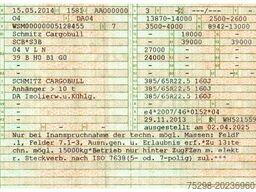 15.05.2014 1581 AAO00000 3 – –
04 DA04 13870-14000 2500-2600
WSM00000005128455 7 3500-4000 8942-13000
Schmitz Cargobull – 18000
SCB*S3B – 39000 39000
04 V L N 27000 –
39 B H0 B1 G0 24000
–
SCHMITZ CARGOBULL 385/65R22.5 160J
Anhänger > 10 t 385/65R22.5 160J
DA Isolierw.u.Kühlg. 385/65R22.5 160J
– –
e4*2007/46*0152*04
29.11.2013 K WH521559
ausgestellt am 02.04.2025
Nur bei Inanspruchnahme der techn. mögl. Massen: Feld F
.1, Felder 7.1-3, Ausn.gen. u. Erlaubnis erf.*Zu 13:te
chn. mögl. 15000kg*Betrieb nur hinter Zugfzen m. elekt
r. Steckverb. nach ISO 7638(5- od. 7-polig) zul.***
75298-20236960